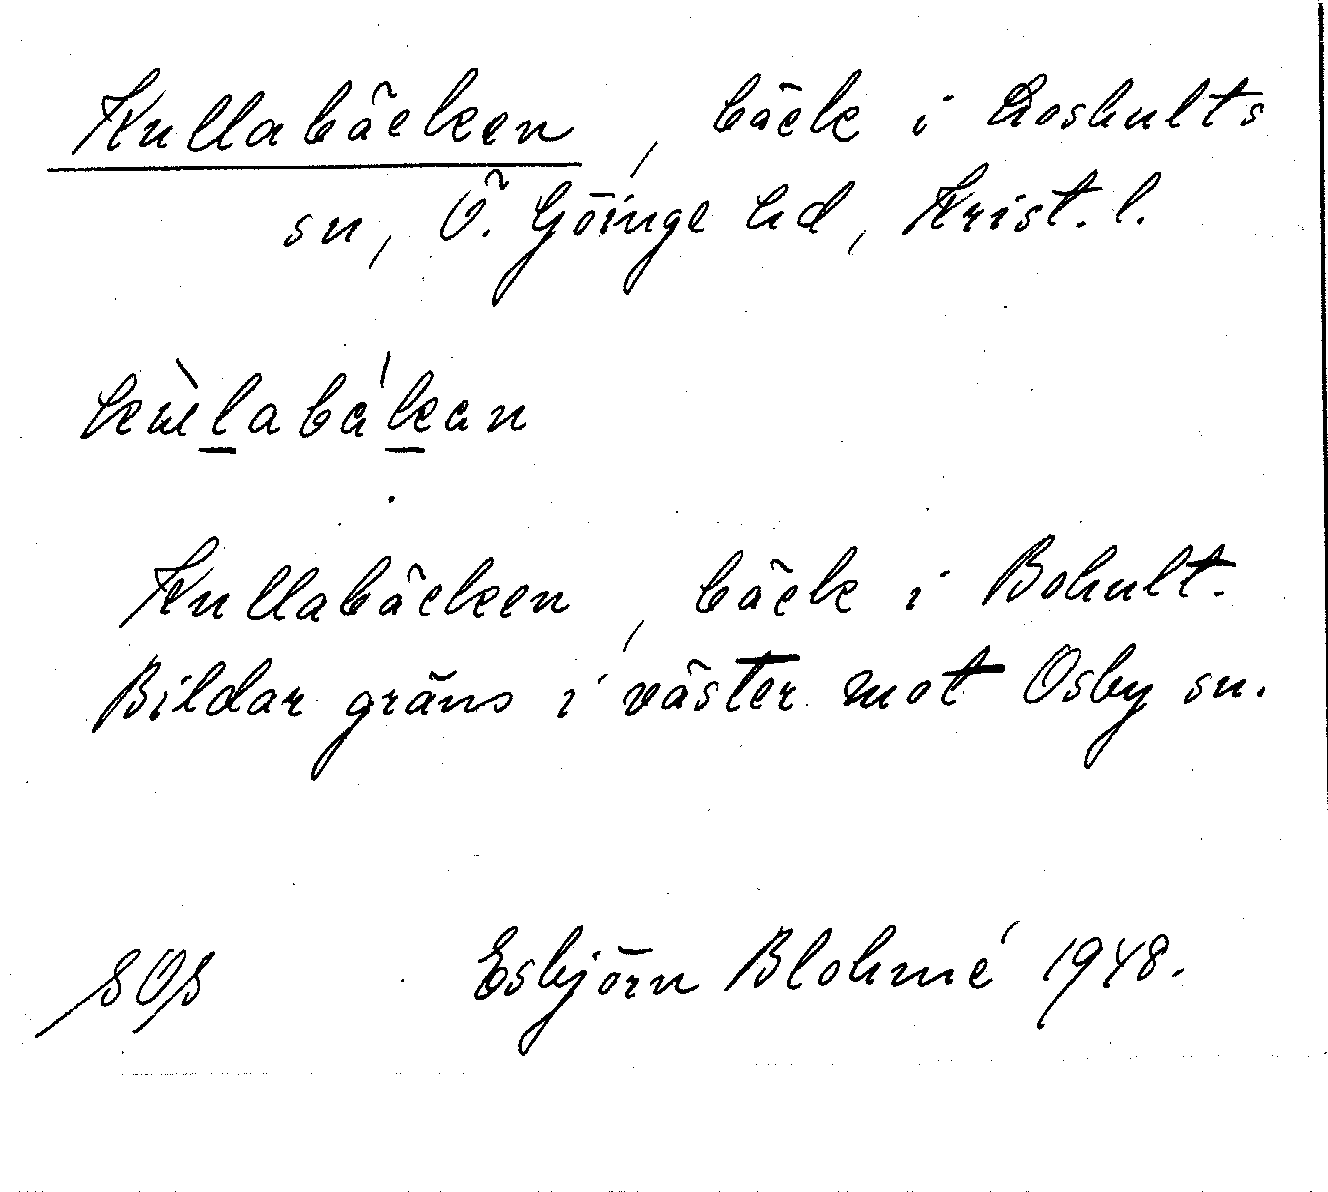 Kullabäcken, bäck i Loshults
sn, Ö. Göinge hd, Krist. l.
kùlabákan
Kullabäcken, bäck i Bohult.
Bildar gräns i väster mot Osby sn.
SOS Esbjörn Blohmé 1948.